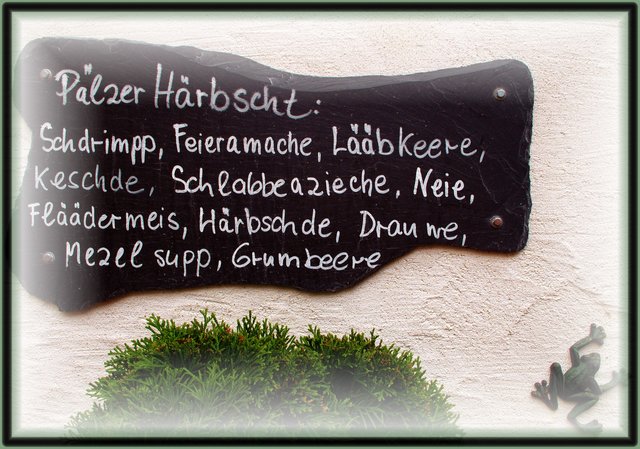 Pälzer Härbscht:
Schdrimpp, Feieramache, Lääbkeere,
Keschde, Schlabbeazieche, Neie,
Fläädermeis, Härbschde, Drauwe,
Mezelsupp, Grumbeere